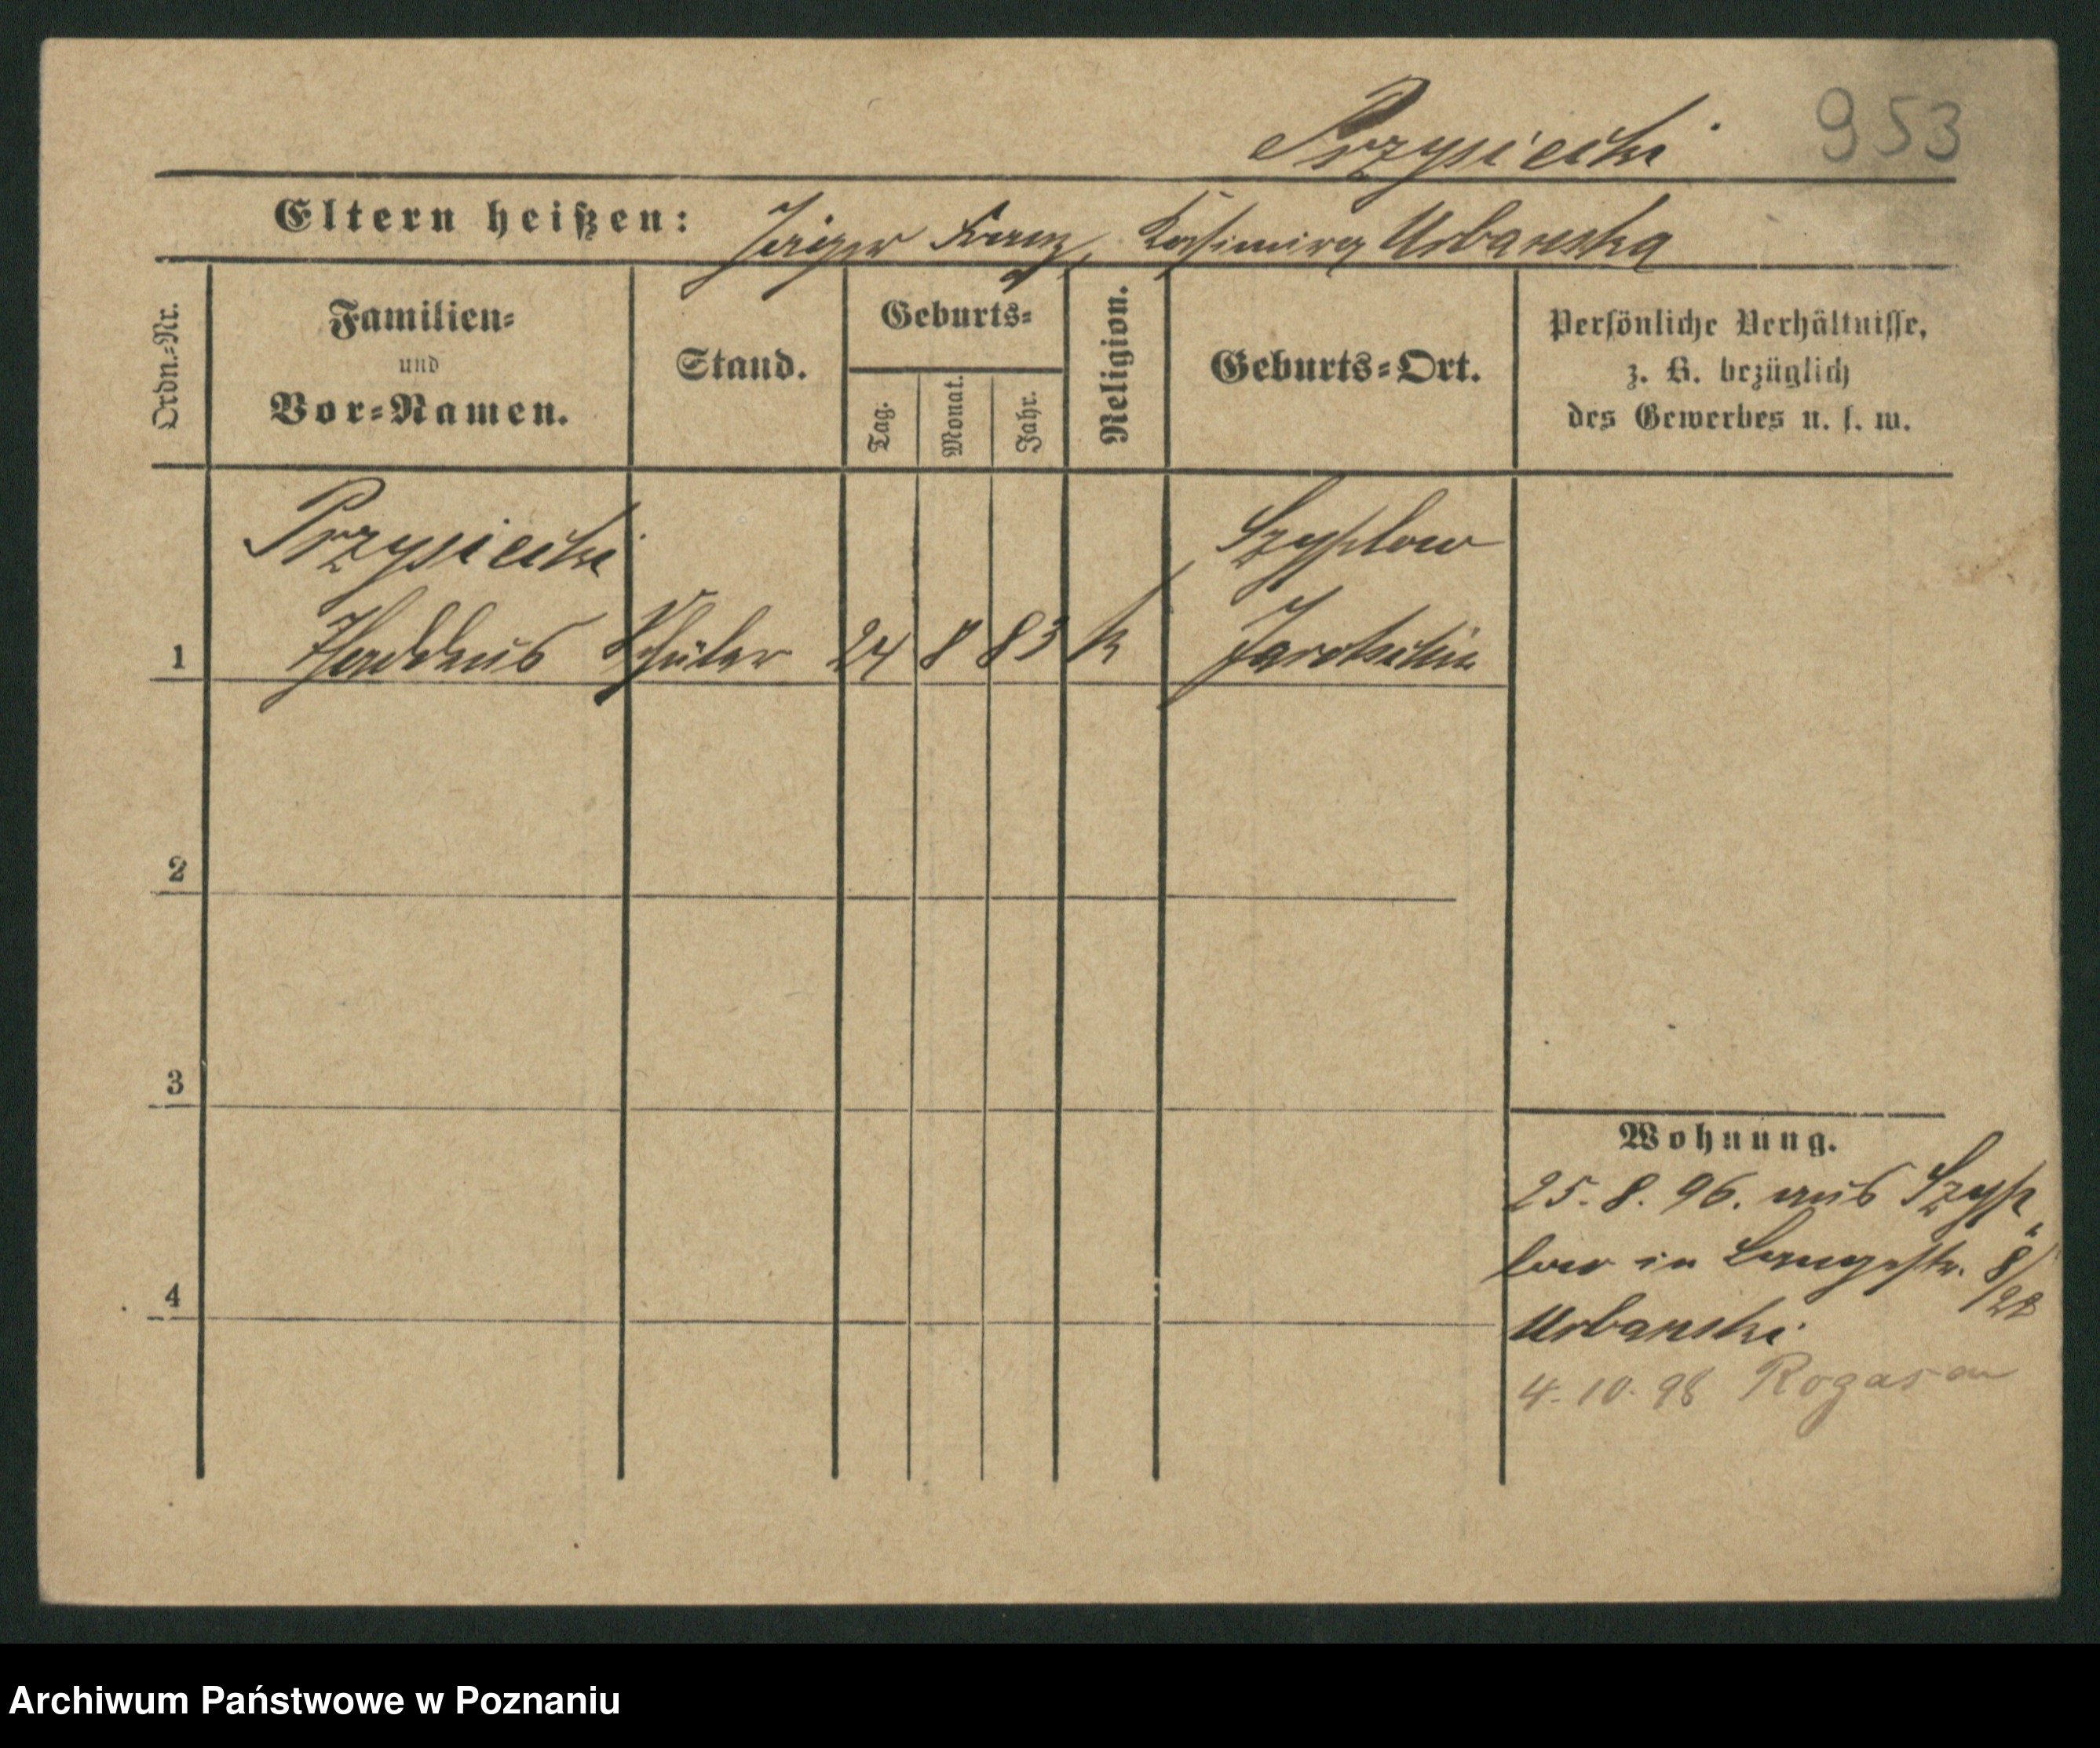 Przysiecki 953
Eltern heißen: Jäger Franz, Kasimira Urbanska
Ordn.=Nr.
Familien=
und
Vor=Namen.
Stand.
Geburts=
Tag.
Monat.
Jahr.
Religion.
Geburts=Ort.
Persönliche Verhältnisse,
z. B. bezüglich
des Gewerbes u. s. w.
Przysiecki Szyplow
1 Thaddeus Schüler 24 8 83 k Jarotschin
2
3
4
Wohnung.
25. 8. 96. aus Szyp„
low in Langestr. 8/
Urbanski
4. 10. 98 Rogasen
Archiwum Państwowe w Poznaniu